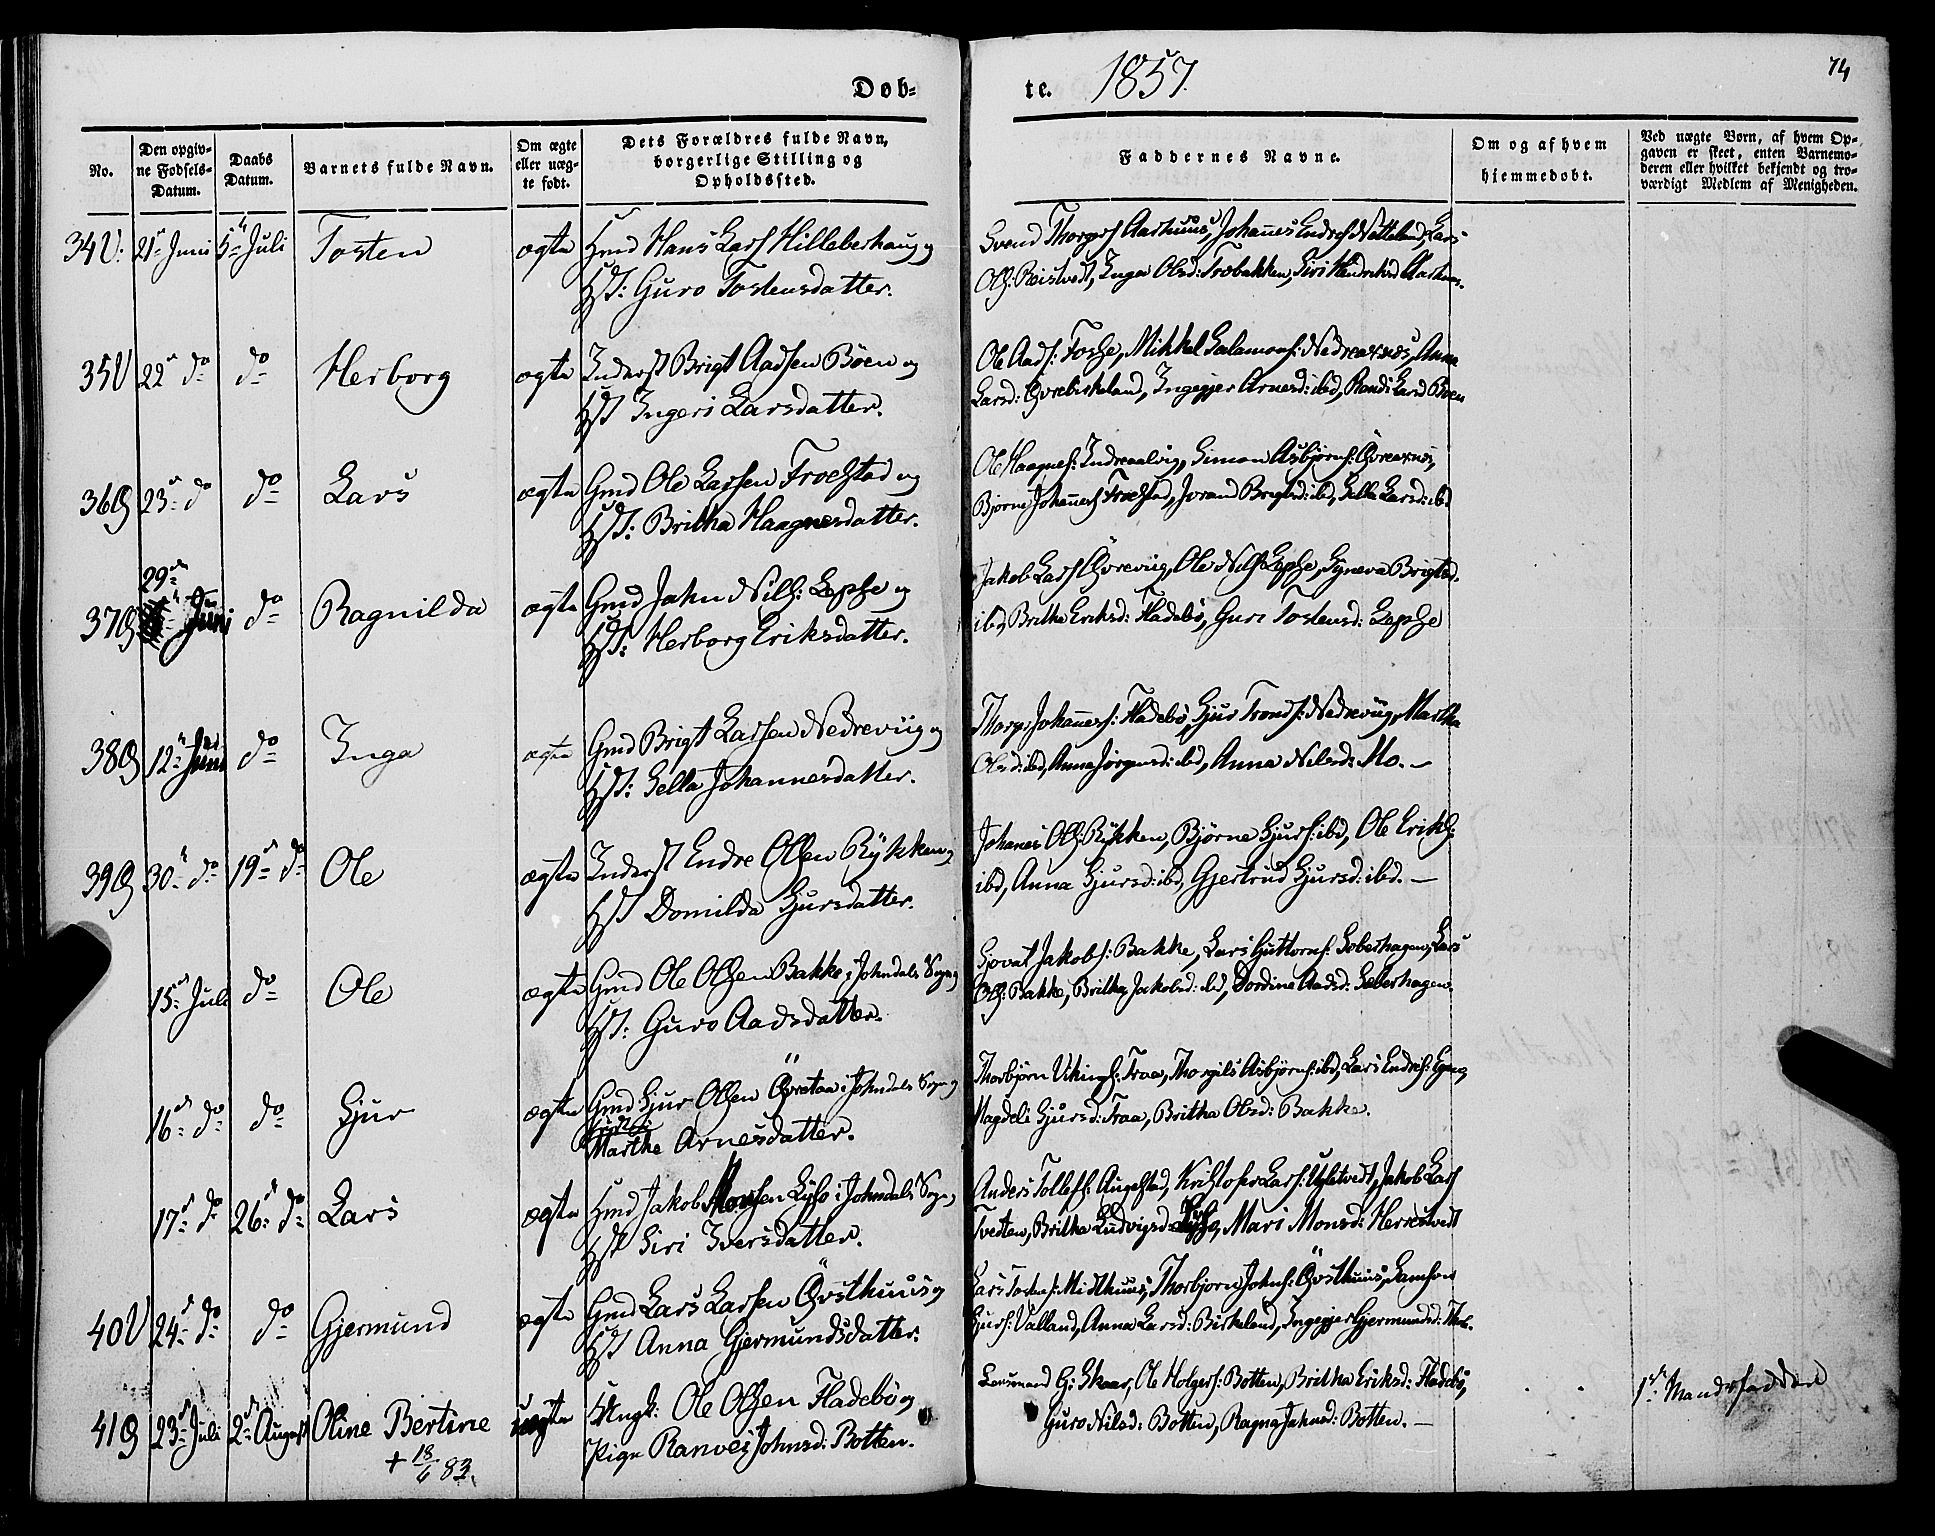 Døb-
te. 1857.
74
No.
Den opgiv-
ne Fødsels-
Datum.
Daabs
Datum.
Barnets fulde Navn.
Om ægte
eller uæg-
te født.
Dets Forældres fulde Navn,
borgerlige Stilling og
Opholdssted.
Faddernes Navne.
Om og af hvem
hjemmedøbt.
Ved uægte Børn, af hvem Op-
gaven er skeet, enten Barnemo-
deren eller hvilket bekjendt og tro-
værdigt Medlem af Menigheden.
34 U: 21 Juni 5 Juli Tosten ægte Hmd Hans Lars Hilleberhaug og
Hst: Guro Tostensdatter.
Svend Thorgers Aarhuus, Johannes Endres Nætteland, Lars
Ols: Reistvedt, Inga Olsd: Træbakken, Siri
35 U 22 do do Herborg ægte Inderst Brigt Aadsen Bøen og
Hst Ingeri Larsdatter.
Ole Aads: Fosse, Mikkel Salamons: Nedrearnes, Anna
Larsd: Øvrebirkeland, Ingegjer Arnesd: ibd, Randi Larsd Bøen
36 G 23 do do Lars ægte Gmd Ole Larsen Froestad og
Hst: Britha Haagnesdatter.
Ole Haagnes: Indreaalvig, Simon Asbjørns: Øvrearnes,
Bjørne Johannes Froestad, Jorand Brigtsd: ibd, Sella Larsd: ibd
37 G 29 Juni do Ragnilda ægte Gmd John Nils: Lepse og
Hst: Herborg Eriksdatter.
Jakob Lars Øvreviig, Ole Nils Lepse, Synneva Brigtsd.
ibd, Britha Eriksd: Fladebø, Guri Tostensd: Lepse
38 G 12 Juni do Inga ægte Gmd Brigt Larsen Nedreviig og
Hst: Sella Johannesdatter.
Thorgr Johannes: Fladebø, Sjur Tronds: Nedreviig, Martha
Olsd: ibd, Anna Jørgensd: ibd, Anna Nilsd: Mo. —
39 G 30 do 19 do Ole ægte Inderst Endre Olsen Rykken og
Hst Domilda Sjursdatter.
Johanes Ols: Rykken, Bjørne Sjurs: ibd, Ole Eriks:
ibd, Anna Sjursd: ibd, Gjertrud Sjursd: ibd. —
15 Juli do Ole ægte Gmd Ole Olsen Bakke i Jondals Sogn og
Hst: Guro Aadsdatter.
Sjovat Jakobs: Bakke, Lars Guttorms: Solberhagen, Lars
Ols: Bakke, Britha Jakobsd: ibd, Dordine Aadsd: Selberhagen.
16 do do Sjur ægte Gmd Sjur Olsen i Johndals Sogn og
Marthe Arnesdatter.
Thorbjørn Vikings: Traa, Thorgils Asbjørns: ibd, Lars Endres:
Magdeli Sjursd: Traa, Britha Olsd: Bakke.
17 do 26 do Lars ægte Hmd Jakob Larsen Lyse i Johndals Sogn og
Hst Siri Iversdatter.
Anders Tollefs: Augestad, Kristofer Lars: Utstvedt, Jakob Lars
Tvedten, Britha Ludvigsd: Lyse, Mari Monsd: Herrestvedt
40 U 24 do do Gjermund ægte Gmd Lars Larsen Østhuus og
Hst Anna Gjermundsdatter.
Lars Tostens: Midthuus, Thorbjørn Johns: Østhuus, Samson
Sjurs: Valland, Anna Larsd: Birkeland, Ingegjer Gjermundsd:
41 G 23 Juli 2 August Oline Bertine uægte Ungk: Ole Olsen Fladebø og
+ 18/6 83.
Pige Ranvei Johnsd: Botten.
Lensmand G: Skaar, Ole Holgers: Botten, Britha Eriksd: Fladebø,
Guro Nilsd: Botten, Ragna Johnsd: Botten. —
1ste